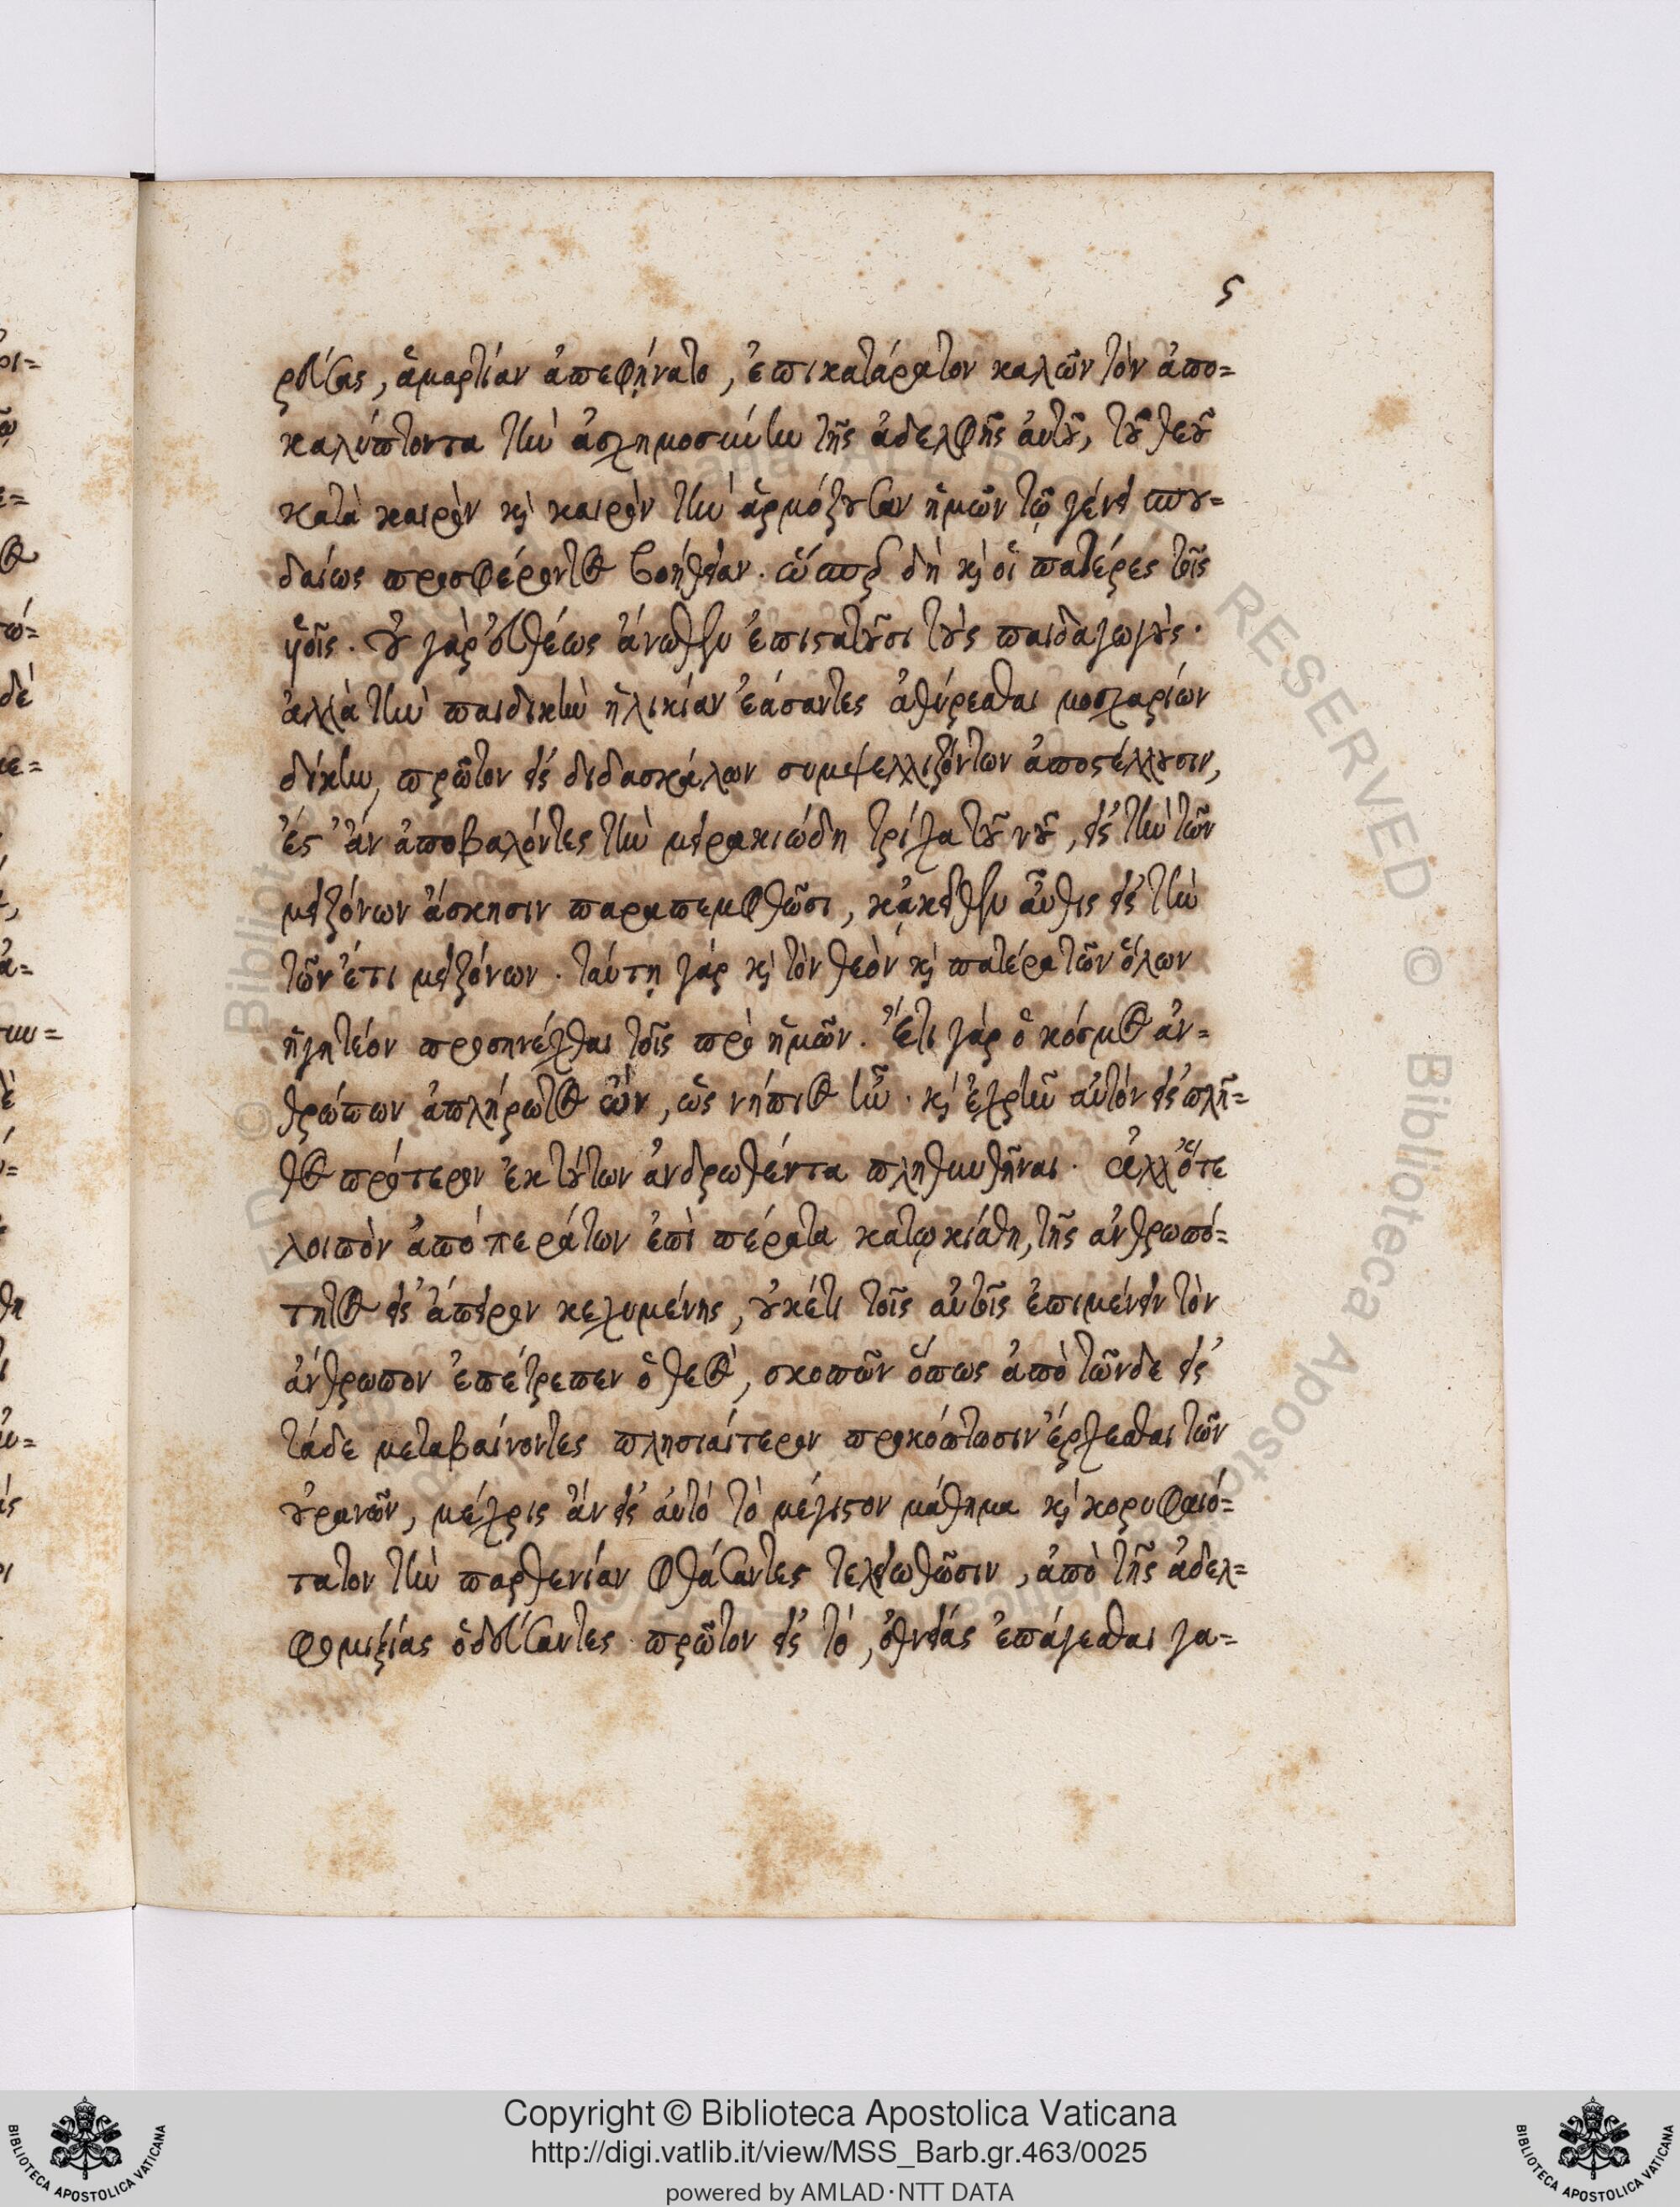 ς
ρίσας, ἁμαρτίαν ἀπεφῄνατο, ἐπικατάρατον καλῶν τὸν ἀπο=
καλύπτοντα τὴν ἀσχημοσύνην τῆς ἀδελφῆς αὐτοῦ, τοῦ θεοῦ
κατὰ καιρὸν καὶ καιρὸν τὴν ἁρμόζουσαν ἡμῶν τῷ γένει σπου=
δαίως προσφέροντος βοήθειαν. ὥσπερ δὴ καὶ οἱ πατέρες τοῖς
υἱοῖς. οὐ γὰρ εὐθέως ἄνωθεν ἐπιστατοῦσι τοὺς παιδαγωγούς.
ἀλλὰ τὴν παιδικὴν ἡλικίαν ἐάσαντες ἀθύρεσθαι μοσχαρίων
δίκην, πρῶτον εἰς διδασκάλων συμψελλιζόντων ἀποστέλλουσιν,
ἐς ἂν ἀποβαλόντες τὴν μειρακιώδη τρίχα τοῦ νοῦ, εἰς τὴν τῶν
μειζόνων ἄσκησιν παραπεμφθῶσι, κἀκεῖθεν αὖθις εἰς τὴν
τῶν ἔτι μειζόνων. ταύτῃ γὰρ καὶ τὸν θεὸν καὶ πατέρα τῶν ὅλων
ἡγητέον προσηνέχθαι τοῖς πρὸ ἡμῶν. Ἔτι γὰρ ὁ κόσμος ἀν=
θρώπων ἀπλήρωτος ὢν, ὡς νήπιος ἦν. καὶ ἐχρῆν αὐτὸν εἰς πλῆ=
θος πρότερον ἐκ τούτων ἀνδρωθέντα πληθυνθῆναι. ἀλλ' ὅτε
λοιπὸν ἀπὸ περάτων ἐπὶ πέρατα κατῳκίσθη, τῆς ἀνθρωπό=
τητος εἰς ἄπειρον κεχυμένης, οὐκέτι τοῖς αὐτοῖς ἐπιμένειν τὸν
ἄνθρωπον ἐπέτρεπεν ὁ θεὸς, σκοπῶν ὅπως ἀπὸ τῶνδε εἰς
τάδε μεταβαίνοντες πλησιαίτερον προκόπτωσιν ἔρχεσθαι τῶν
οὐρανῶν, μέχρις ἂν εἰς αὐτὸ τὸ μέγιστον μάθημα καὶ κορυφαιό=
τατον τὴν παρθενίαν φθάσαντες τελειωθῶσιν, ἀπὸ τῆς ἀδελ=
φομιξίας ὁδεύσαντες πρῶτον εἰς τὸ, ὀθνείας ἐπάγεσθαι γα=